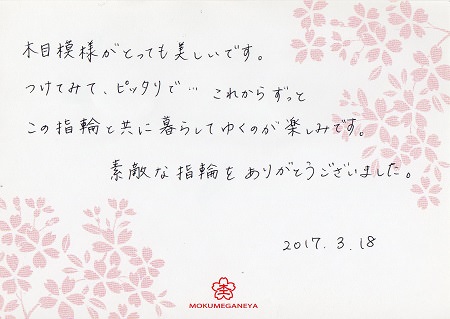 木目模様がとっても美しいです。
つけてみて、ピッタリで… これからずっと
この指輪と共に暮らしてゆくのが楽しみです。
素敵な指輪をありがとうございました。
2017.3.18
MOKUMEGANEYA